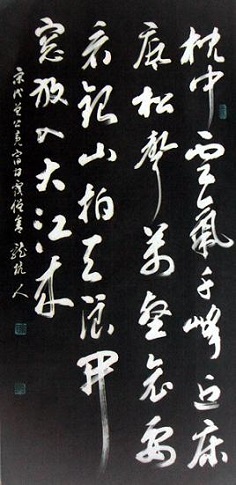 枕中雲氣千峰近床
底松聲萬壑哀要
看銀山拍天浪開
窗放入大江來
宋代曾公亮宿甘露僧舍